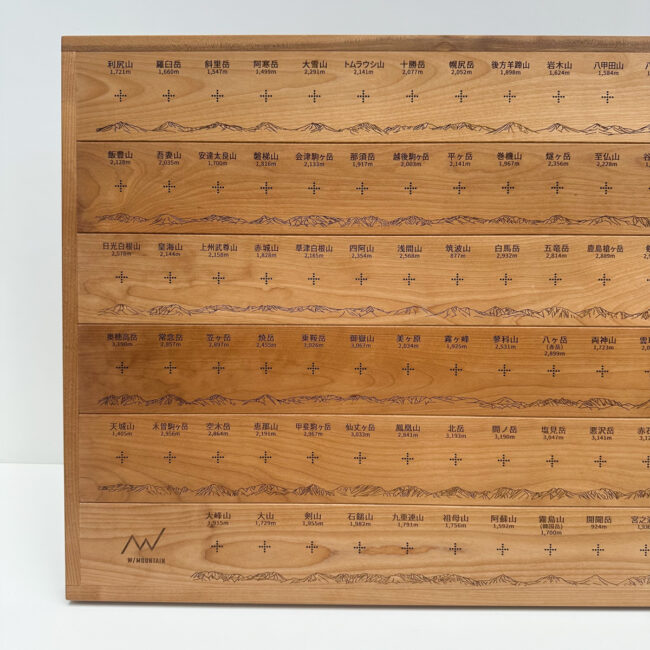 利尻山 羅臼岳 斜里岳 阿寒岳 大雪山 トムラウシ山 十勝岳 幌尻岳 後方羊蹄山 岩木山 八甲田山 八
1,721m 1,660m 1,547m 1,499m 2,291m 2,141m 2,077m 2,052m 1,898m 1,624m 1,584m
飯豊山 吾妻山 安達太良山 磐梯山 会津駒ヶ岳 那須岳 越後駒ヶ岳 平ヶ岳 巻機山 燧ヶ岳 至仏山 谷
2,128m 2,035m 1,700m 1,816m 2,133m 1,917m 2,003m 2,141m 1,967m 2,356m 2,228m
日光白根山 皇海山 上州武尊山 赤城山 草津白根山 四阿山 浅間山 筑波山 白馬岳 五竜岳 鹿島槍ヶ岳
2,578m 2,144m 2,158m 1,828m 2,165m 2,354m 2,568m 877m 2,932m 2,814m 2,889m
奥穂高岳 常念岳 笠ヶ岳 焼岳 乗鞍岳 御嶽山 美ヶ原 霧ヶ峰 蓼科山 八ヶ岳 両神山 雲
3,190m 2,857m 2,897m 2,455m 3,026m 3,067m 2,034m 1,925m 2,531m (赤岳) 1,723m
2,899m
天城山 木曽駒ヶ岳 空木岳 恵那山 甲斐駒ヶ岳 仙丈ヶ岳 鳳凰山 北岳 間ノ岳 塩見岳 悪沢岳 赤石
1,405m 2,956m 2,864m 2,191m 2,967m 3,033m 2,841m 3,193m 3,190m 3,047m 3,141m
大峰山 大山 剣山 石鎚山 九重連山 祖母山 阿蘇山 霧島山 開聞岳 宮之
1,915m 1,729m 1,955m 1,982m 1,791m 1,756m 1,592m (韓国岳) 924m
1,700m
W/MOUNTAIN